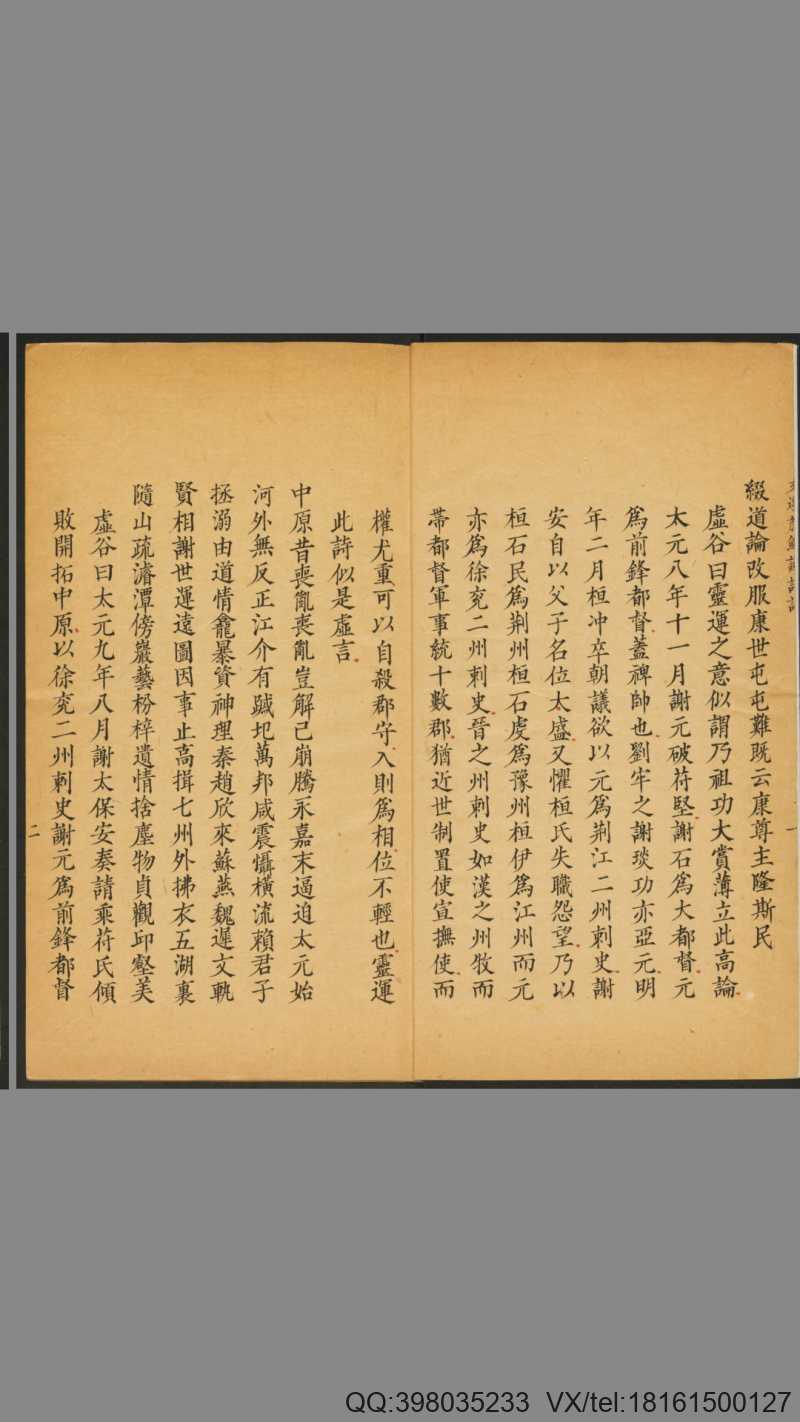 綴道論改服康世屯屯難既云康尊主隆斯民
虛谷曰靈運之意似謂乃祖功大賞薄立此高論
太元八年十一月謝元破苻堅謝石爲大都督元
爲前鋒都督蓋裨帥也劉牢之謝琰功亦亞元明
年二月桓冲卒朝議欲以元爲荆江二州刺史謝
安自以父子名位太盛又懼桓氏失職怨望乃以
桓石民爲荆州桓石虔爲豫州桓伊爲江州而元
亦爲徐兖二州刺史晉之州刺史如漢之州牧而
帶都督軍事統十數郡猶近世制置使宣撫使而
權尤重可以自殺郡守入則爲相位不輕也靈運
此詩似是虛言
中原昔喪亂喪亂豈解已崩騰永嘉末逼迫太元始
河外無反正江介有蹙圮萬邦咸震懾橫流賴君子
拯溺由道情龕暴資神理秦趙欣來蘇燕魏遲文軌
賢相謝世運遠圖因事止高揖七州外拂衣五湖裏
隨山疏濬潭傍巖藝枌梓遺情捨塵物貞觀邱壑美
虛谷曰太元九年八月謝太保安奏請乘苻氏傾
敗開拓中原以徐兖二州刺史謝元爲前鋒都督
二
QQ:398035233 VX/tel:18161500127